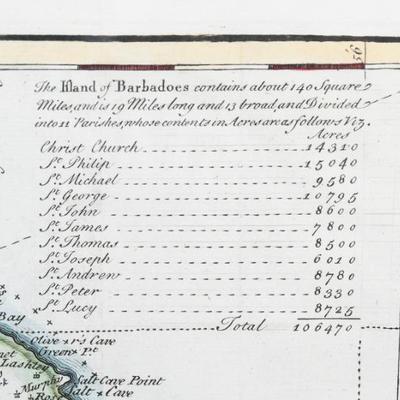 56
The Island of Barbadoes contains about 140 Square
Miles, and is 19 Miles long and 13 broad, and Divided
into 11 Parishes, whose contents in Acres are as follows Viz.
Acres
Christ Church 14310
St. Philip 15040
St. Michael 9580
St. George 10795
St. John 8600
St. James 7800
St. Thomas 8500
St. Joseph 6010
St. Andrew 8780
St. Peter 8330
St. Lucy 8725
Total 106470
Bay
Olive r's Cave
Green Pt.
Lashley
Murphy
Salt Cave Point
Salt Cave